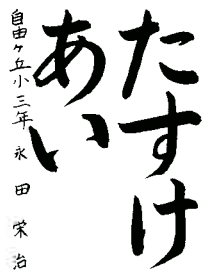 たすけ
あい
自由ヶ丘小三年 永田栄治